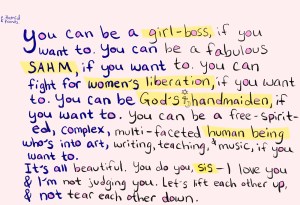 you can be a girl-boss, if you
want to. you can be a fabulous
SAHM, if you want to. you can
fight for women's liberation, if you want
to. you can be God's handmaiden, if
you want to. you can be a free-spirit-
ed, complex, multi-faceted human being
who's into art, writing, teaching, & music, if you
want to.
It's all beautiful. You do you, sis - I love you
& I'm not judging you. Let's lift each other up,
& not tear each other down.